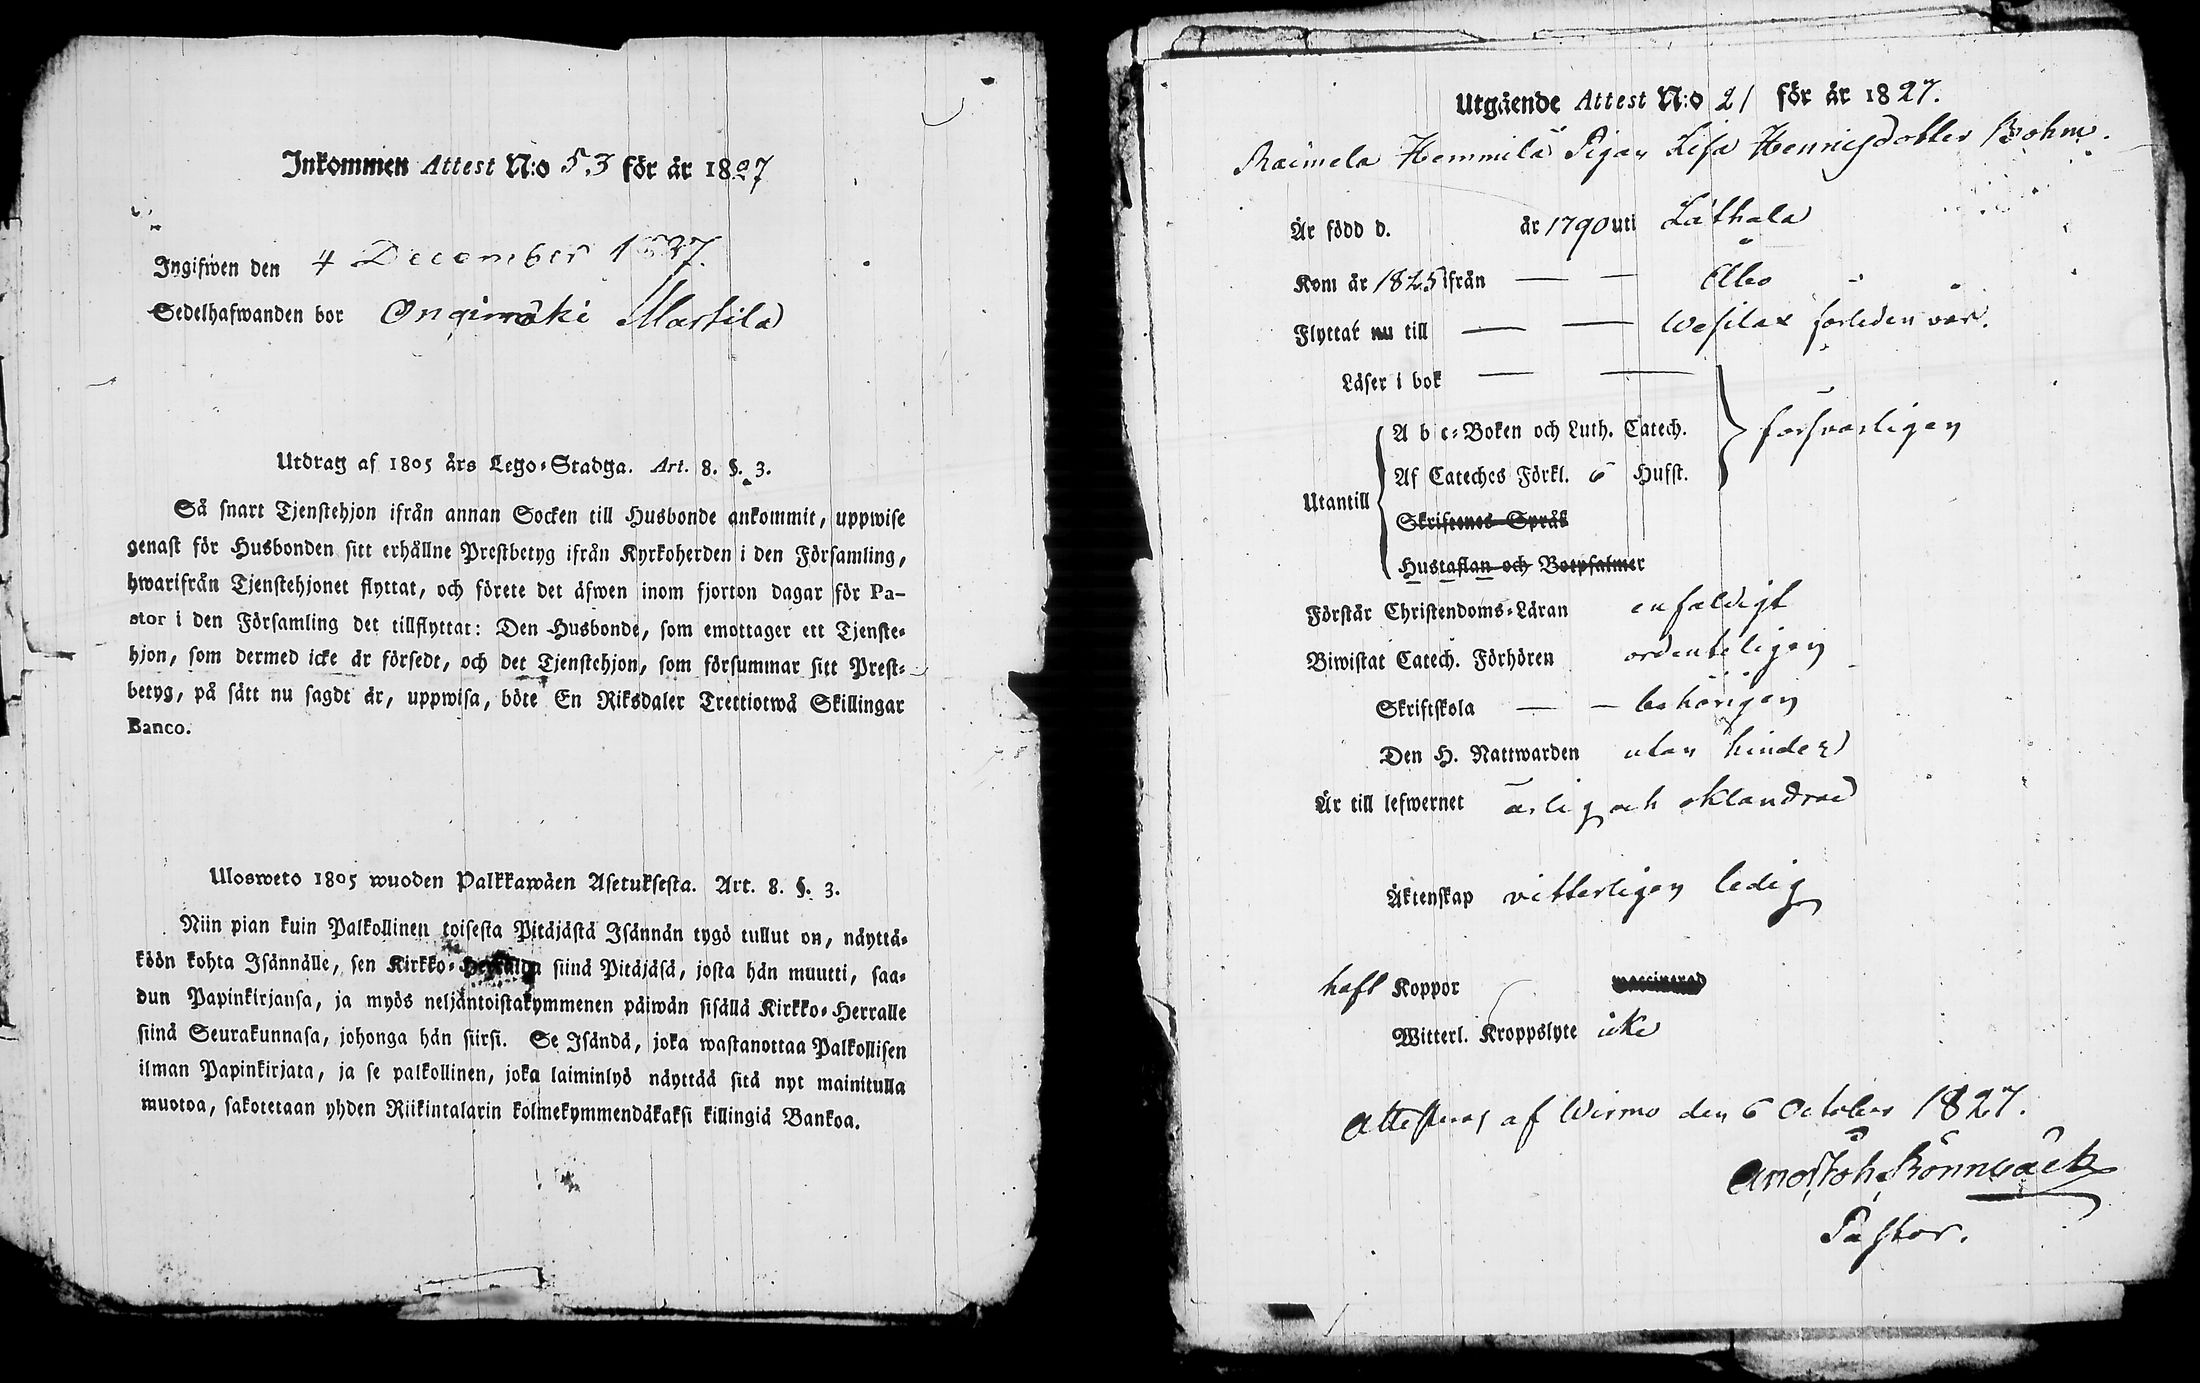 Inkommen Attest N:o 53 för år 1827
Ingifwen den 4 December 1827.
Sedelhafwanden bor Ongimäki Martila
Utdrag af 1805 års Lego-Stadga. Art. 8. §. 3.
Så snart Tjenstehjon ifrån annan Socken till Husbonde ankommit, uppwise
genast för Husbonden sitt erhållne Prestbetyg ifrån Kyrkoherden i den Församling,
hwarifrån Tjenstehjonet flyttat, och förete det äfwen inom fjorton dagar för Pa-
stor i den Församling det tillflyttat: Den Husbonde, som emottager ett Tjenste-
hjon, som dermed icke är försedt, och det Tjenstehjon, som försummar sitt Prest-
betyg, på sätt nu sagdt är, uppwisa, böte En Riksdaler Trettiotwå Skillingar
Banco.
Ulosweto 1805 wuoden Palkkawäen Asetuksesta. Art. 8. §. 3.
Niin pian kuin Palkollinen toisesta Pitäjästä Isännän tygö tullut on, näyttä-
köön kohta Isännälle, sen Kirkko-Herralda siinä Pitäjäsä, josta hän muutti, saa-
dun Papinkirjansa, ja myös neljäntoistakymmenen päiwän sisällä Kirkko-Herralle
siinä Seurakunnasa, johonga hän siirsi. Se Isändä, joka wastanottaa Palkollisen
ilman Papinkirjata, ja se palkollinen, joka laiminlyö näyttää sitä nyt mainitulla
muotoa, sakotetaan yhden Riikintalarin kolmekymmendäkaksi killingiä Bankoa.
Utgående Attest N:o 21 för år 1827.
Raimela Hemmilä Pigan Lisa Henricsdotter Bohm.
Är född d. år 1790 uti Läthala
Kom år 1825 ifrån — — Åbo
Flyttat nu till — — Wesilax förleden vår.
Läser i bok — —
A b c-Boken och Luth. Catech. försvarligen
Af Cateches Förkl. 6 Hufst.
Utantill
Skriftenes Språk
Hustaflan och Botpsalmer
Förstår Christendoms-Läran enfaldigt
Biwistat Catech. Förhören ordenteligen
Skriftskola — — behörigen
Den H. Nattwarden utan hinder
Är till lefwernet ärlig och oklandrad
Äktenskap vitterligen ledig
haft Koppor waccinerad
Witterl. Kroppslyte icke
Attesteras af Wirmo den 6 October 1827.
And. Joh. Rönnbäck
Pastor.